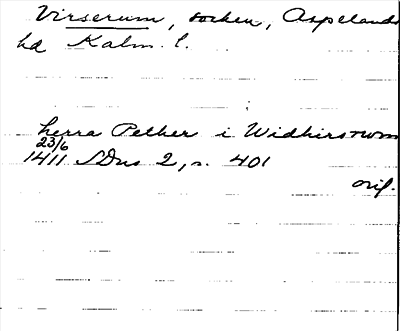 Virserum, socken, Aspelands
hd Kalm. l.
herra Pether i Widhirsrwm
23/6
1411 SDns 2, s. 401
orig.